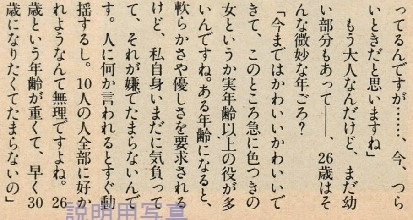 ってるんですが……、今、つら
いときだと思いますね」
もう大人なんだけど、まだ幼
い部分もあって――、26歳はそ
んな微妙な年ごろ？
「今まではかわいいかわいいで
きて、このところ急に色つきの
女というか実年齢以上の役が多
いんですね。ある年齢になると、
軟らかさや優しさを要求される
けど、私自身いまだに気負って
て、それが嫌でたまらないんで
す。人に何か言われるとすぐ動
揺するし。10人の人全部に好か
れようなんて無理ですよね。26
歳という年齢が重くて、早く30
歳になりたくてたまらないの」
説明用写真